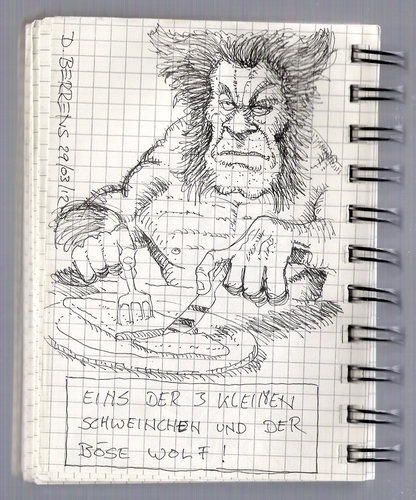 D. BEHRENS 29/03/12
EINS DER 3 KLEINEN
SCHWEINCHEN UND DER
BÖSE WOLF!